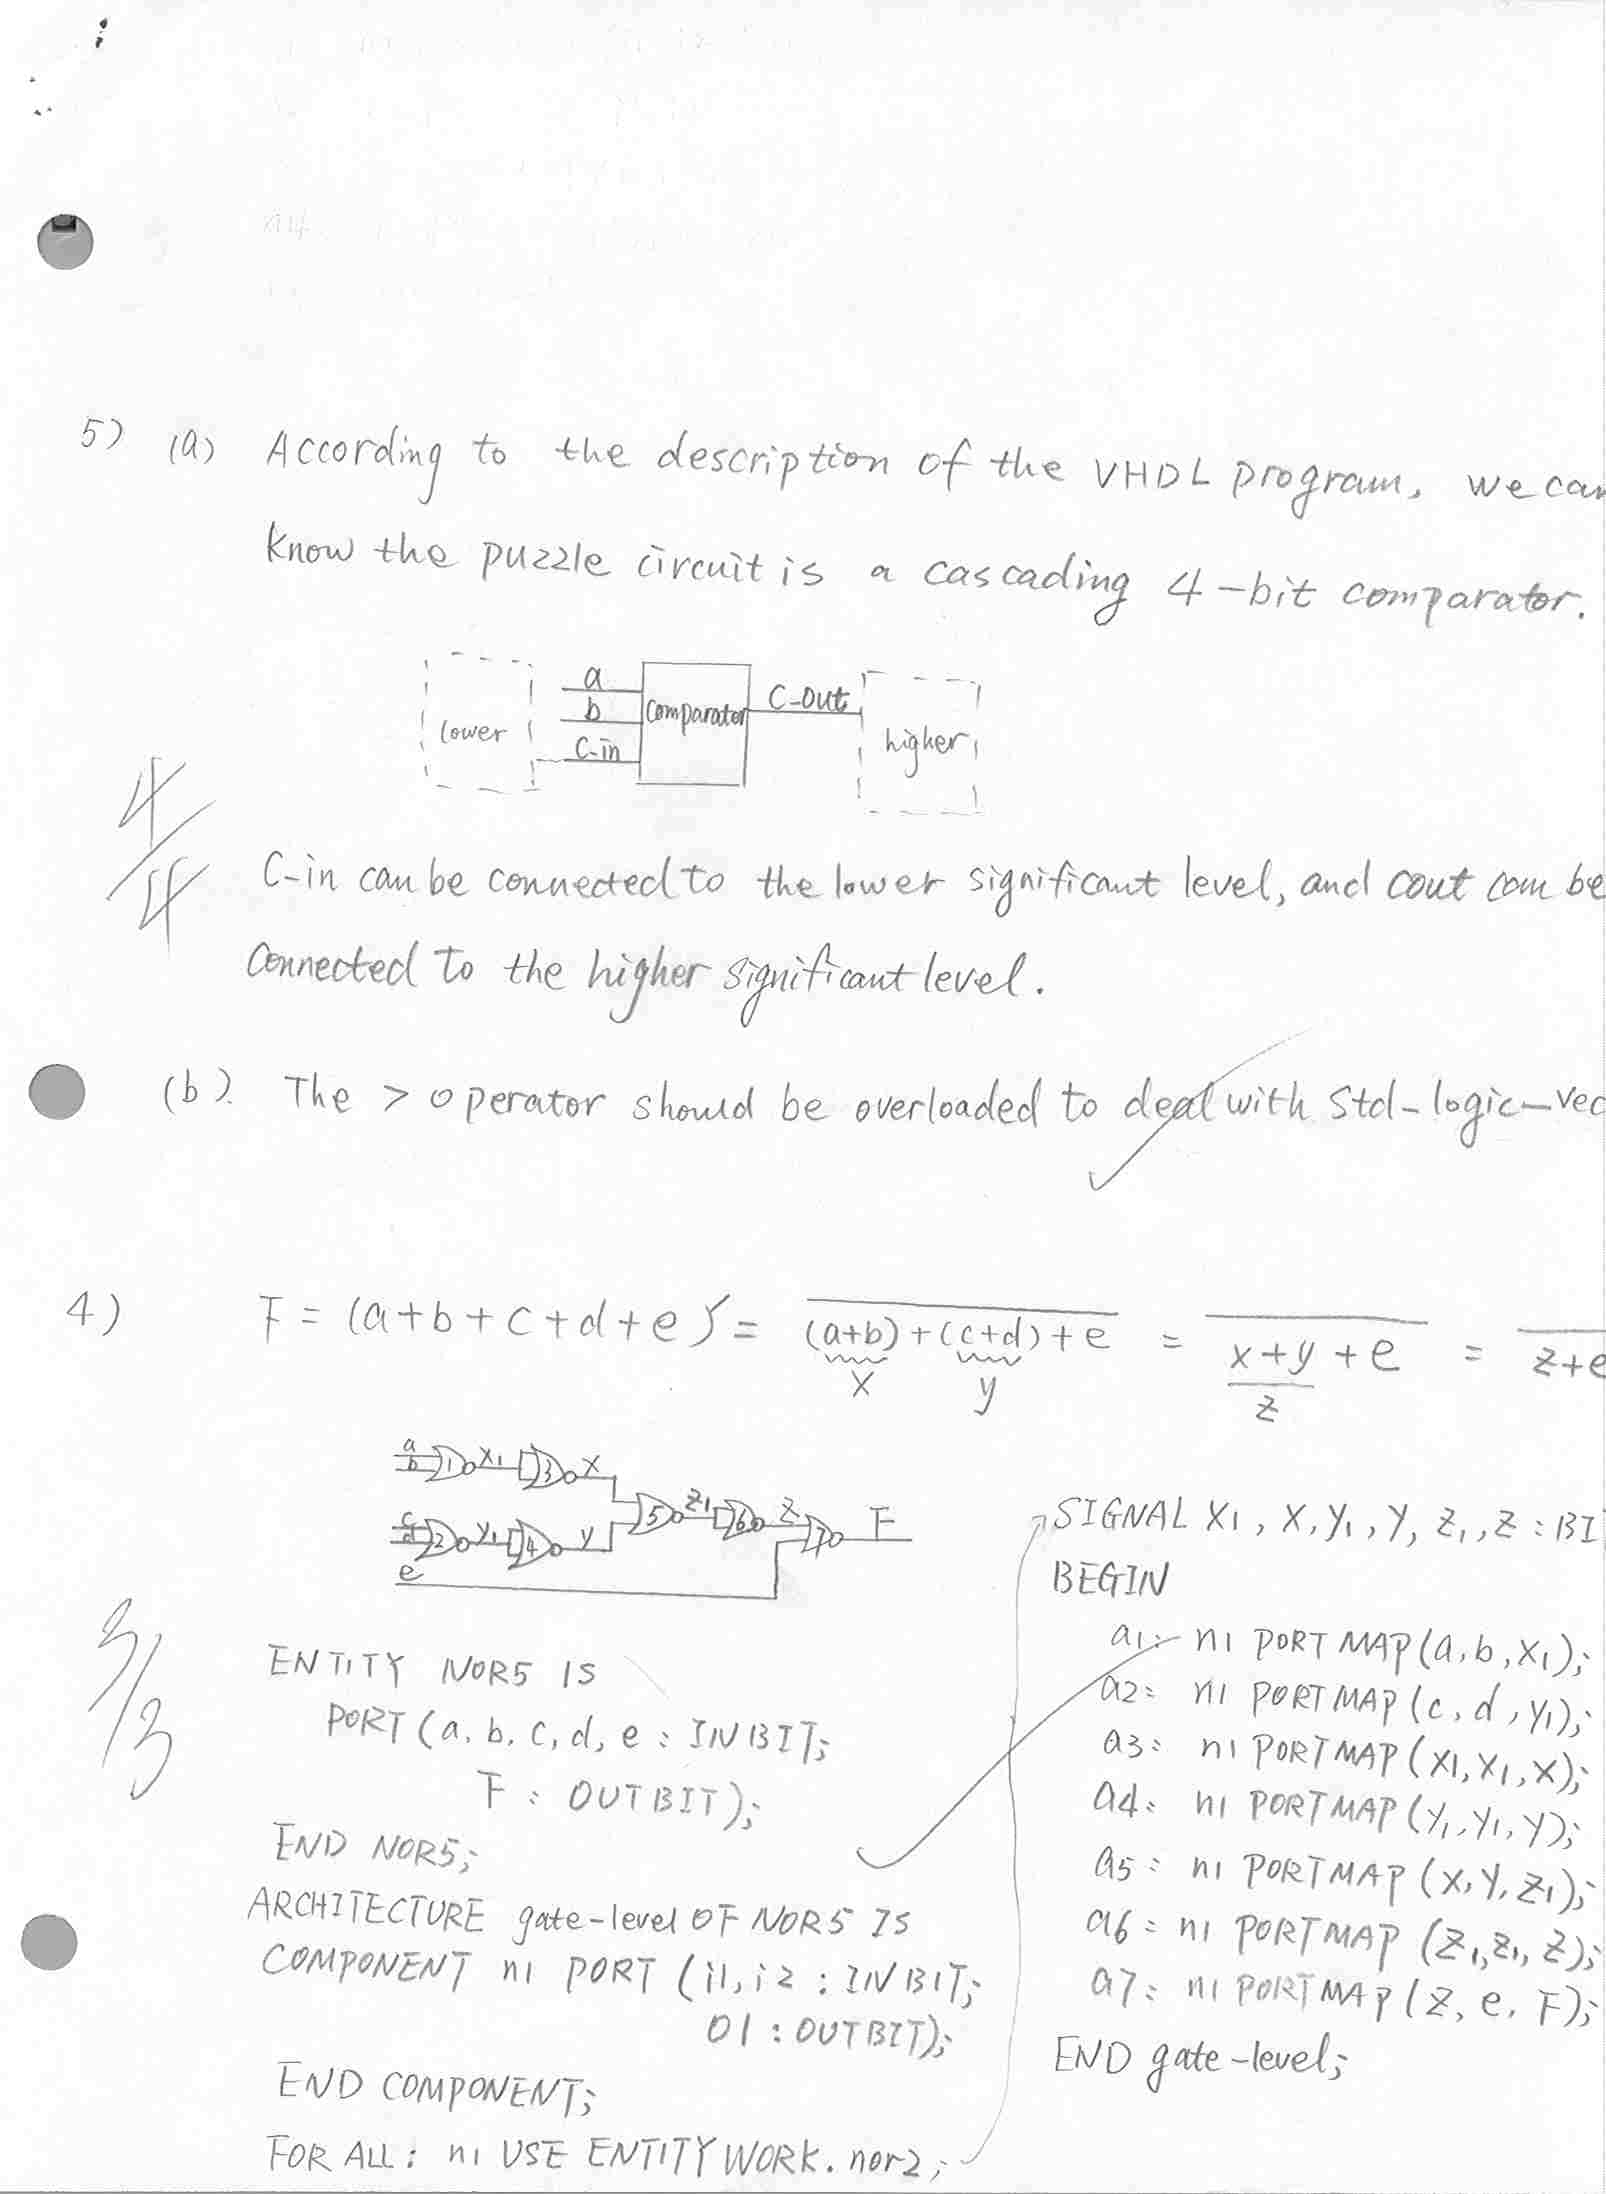 5) (a) According to the description of the VHDL program, we can
know the puzzle circuit is a cascading 4-bit comparator.
lower
a
b
C-in
comparator
C-out
higher
4/4
C-in can be connected to the lower significant level, and cout can be
connected to the higher significant level.
(b). The > operator should be overloaded to deal with std-logic-vec
4) F = (a+b+c+d+e)' = (a+b)+(c+d)+e = x+y+e = z+e
x y z
a
b
1 x1 3 x
c
d
2 y1 4 y
5 z1 6 z 7 F
e
3/3
ENTITY NOR5 IS
PORT (a, b, c, d, e : IN BIT;
F : OUT BIT);
END NOR5;
ARCHITECTURE gate-level OF NOR5 IS
COMPONENT n1 PORT (i1, i2 : IN BIT;
O1 : OUT BIT);
END COMPONENT;
FOR ALL : n1 USE ENTITY WORK. nor2;
SIGNAL x1, x, y1, y, z1, z : BI
BEGIN
a1: n1 PORT MAP (a, b, x1);
a2: n1 PORT MAP (c, d, y1);
a3: n1 PORT MAP (x1, x1, x);
a4: n1 PORT MAP (y1, y1, y);
a5: n1 PORT MAP (x, y, z1);
a6: n1 PORT MAP (z1, z1, z);
a7: n1 PORT MAP (z, e, F);
END gate-level;